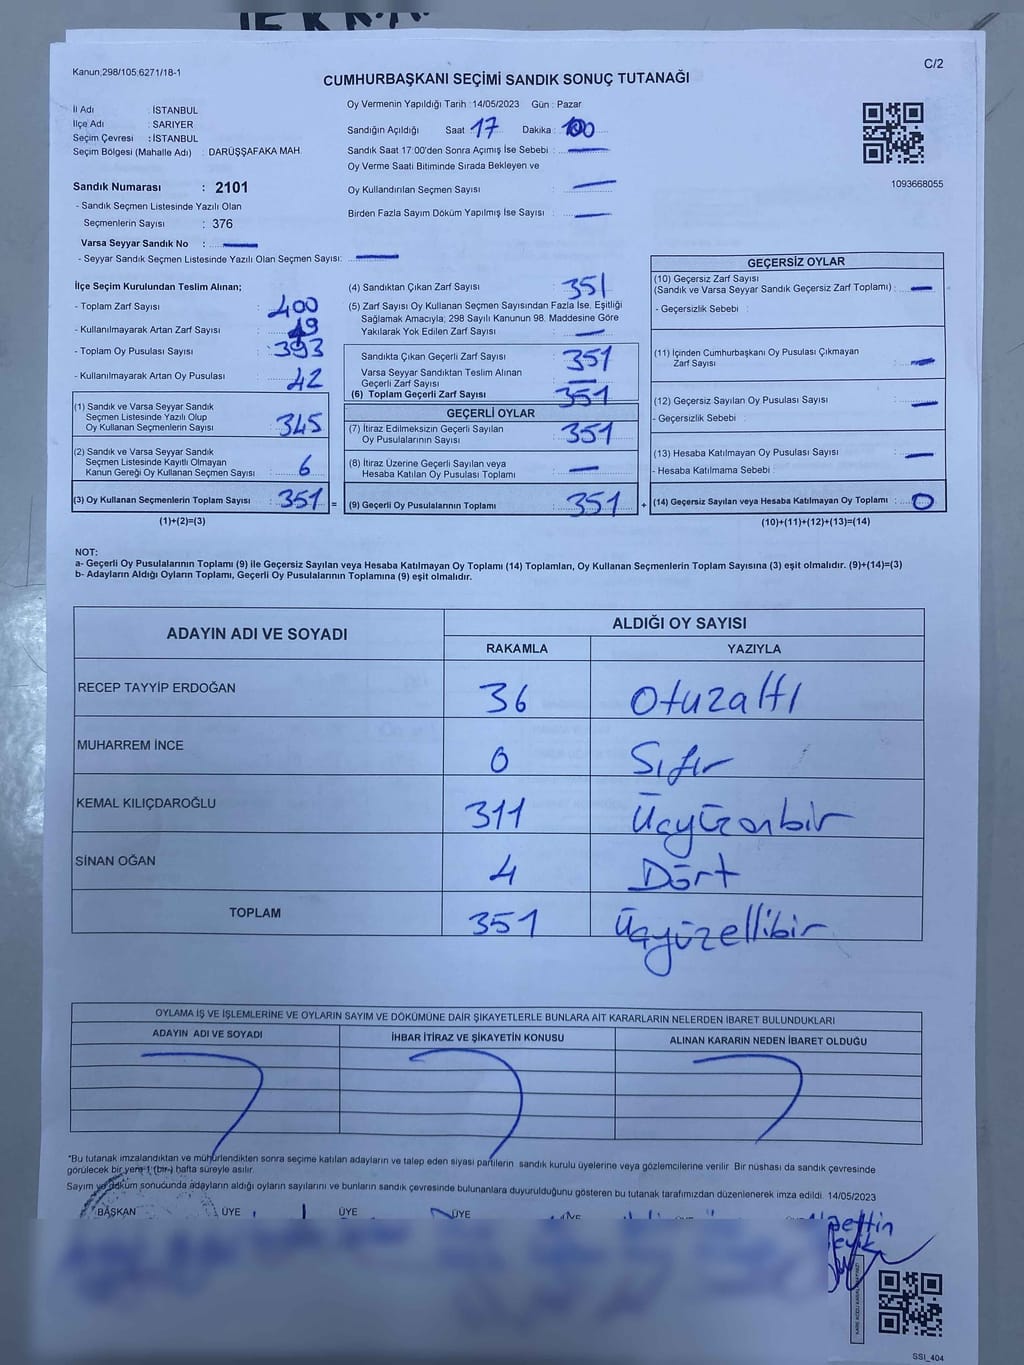 Kanun;298/105;6271/18-1
C/2
CUMHURBAŞKANI SEÇİMİ SANDIK SONUÇ TUTANAĞI
İl Adı : İSTANBUL
İlçe Adı : SARIYER
Seçim Çevresi : İSTANBUL
Seçim Bölgesi (Mahalle Adı) : DARÜŞŞAFAKA MAH.
Sandık Numarası : 2101
- Sandık Seçmen Listesinde Yazılı Olan
Seçmenlerin Sayısı : 376
Varsa Seyyar Sandık No :
- Seyyar Sandık Seçmen Listesinde Yazılı Olan Seçmen Sayısı:
Oy Vermenin Yapıldığı Tarih : 14/05/2023 Gün : Pazar
Sandığın Açıldığı Saat 17 Dakika :
Sandık Saat 17:00'den Sonra Açımış İse Sebebi :
Oy Verme Saati Bitiminde Sırada Bekleyen ve
Oy Kullandırılan Seçmen Sayısı :
Birden Fazla Sayım Döküm Yapılmış İse Sayısı :
1093668055
İlçe Seçim Kurulundan Teslim Alınan;
- Toplam Zarf Sayısı : 400
- Kullanılmayarak Artan Zarf Sayısı : 49
- Toplam Oy Pusulası Sayısı : 393
- Kullanılmayarak Artan Oy Pusulası : 42
(1) Sandık ve Varsa Seyyar Sandık
Seçmen Listesinde Yazılı Olup
Oy Kullanan Seçmenlerin Sayısı : 345
(2) Sandık ve Varsa Seyyar Sandık
Seçmen Listesinde Kayıtlı Olmayan
Kanun Gereği Oy Kullanan Seçmen Sayısı : 6
(3) Oy Kullanan Seçmenlerin Toplam Sayısı : 351 =
(1)+(2)=(3)
(4) Sandıktan Çıkan Zarf Sayısı : 351
(5) Zarf Sayısı Oy Kullanan Seçmen Sayısından Fazla İse, Eşitliği
Sağlamak Amacıyla; 298 Sayılı Kanunun 98. Maddesine Göre
Yakılarak Yok Edilen Zarf Sayısı :
Sandıkta Çıkan Geçerli Zarf Sayısı : 351
Varsa Seyyar Sandıktan Teslim Alınan
Geçerli Zarf Sayısı :
(6) Toplam Geçerli Zarf Sayısı : 351
GEÇERLİ OYLAR
(7) İtiraz Edilmeksizin Geçerli Sayılan
Oy Pusulalarının Sayısı : 351
(8) İtiraz Üzerine Geçerli Sayılan veya
Hesaba Katılan Oy Pusulası Toplamı :
(9) Geçerli Oy Pusulalarının Toplamı : 351 +
GEÇERSİZ OYLAR
(10) Geçersiz Zarf Sayısı
(Sandık ve Varsa Seyyar Sandık Geçersiz Zarf Toplamı) :
- Geçersizlik Sebebi :
(11) İçinden Cumhurbaşkanı Oy Pusulası Çıkmayan
Zarf Sayısı :
(12) Geçersiz Sayılan Oy Pusulası Sayısı :
- Geçersizlik Sebebi :
(13) Hesaba Katılmayan Oy Pusulası Sayısı :
- Hesaba Katılmama Sebebi :
(14) Geçersiz Sayılan veya Hesaba Katılmayan Oy Toplamı : 0
(10)+(11)+(12)+(13)=(14)
NOT:
a- Geçerli Oy Pusulalarının Toplamı (9) ile Geçersiz Sayılan veya Hesaba Katılmayan Oy Toplamı (14) Toplamları, Oy Kullanan Seçmenlerin Toplam Sayısına (3) eşit olmalıdır. (9)+(14)=(3)
b- Adayların Aldığı Oyların Toplamı, Geçerli Oy Pusulalarının Toplamına (9) eşit olmalıdır.
ADAYIN ADI VE SOYADI
ALDIĞI OY SAYISI
RAKAMLA YAZIYLA
RECEP TAYYİP ERDOĞAN 36 Otuzaltı
MUHARREM İNCE 0 Sıfır
KEMAL KILIÇDAROĞLU 311 Üçyüzonbir
SİNAN OĞAN 4 Dört
TOPLAM 351 Üçyüzellibir
OYLAMA İŞ VE İŞLEMLERİNE VE OYLARIN SAYIM VE DÖKÜMÜNE DAİR ŞİKAYETLERLE BUNLARA AİT KARARLARIN NELERDEN İBARET BULUNDUKLARI
ADAYIN ADI VE SOYADI İHBAR İTİRAZ VE ŞİKAYETİN KONUSU ALINAN KARARIN NEDEN İBARET OLDUĞU
*Bu tutanak imzalandıktan ve mühürlendikten sonra seçime katılan adayların ve talep eden siyasi partilerin sandık kurulu üyelerine veya gözlemcilerine verilir Bir nüshası da sandık çevresinde
görülecek bir yere 1 (bir-) hafta süreyle asılır.
Sayım ve döküm sonucunda adayların aldığı oyların sayılarını ve bunların sandık çevresinde bulunanlara duyurulduğunu gösteren bu tutanak tarafımızdan düzenlenerek imza edildi. 14/05/2023
BAŞKAN ÜYE ÜYE ÜYE ÜYE ÜYE ÜYE
SSI_404